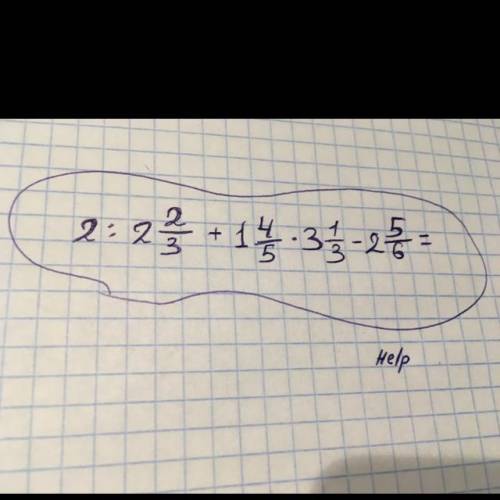 2 : 2 2/3 + 1 4/5 · 3 1/3 - 2 5/6 =
Help